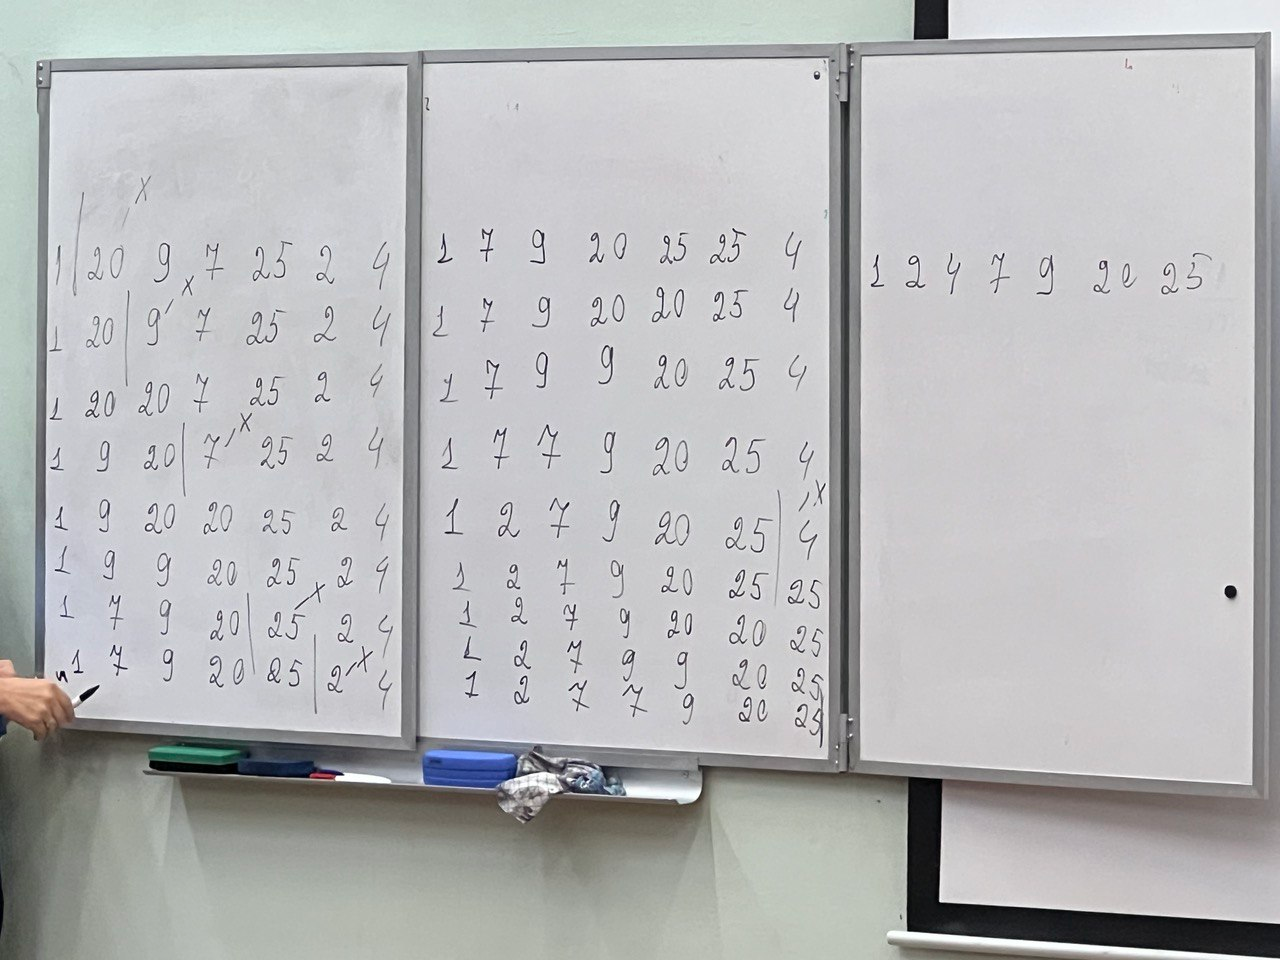 x
1 20 9 7 25 2 4
x
1 20 9 7 25 2 4
1 20 20 7 25 2 4
x
1 9 20 7 25 2 4
1 9 20 20 25 2 4
1 9 9 20 25 2 4
x
1 7 9 20 25 2 4
x
1 7 9 20 25 2 4
1 7 9 20 25 25 4
1 7 9 20 20 25 4
1 7 9 9 20 25 4
1 7 7 9 20 25 4
x
1 2 7 9 20 25 4
1 2 7 9 20 25 25
1 2 7 9 20 20 25
1 2 7 9 9 20 25
1 2 7 7 9 20 25
1 2 4 7 9 20 25